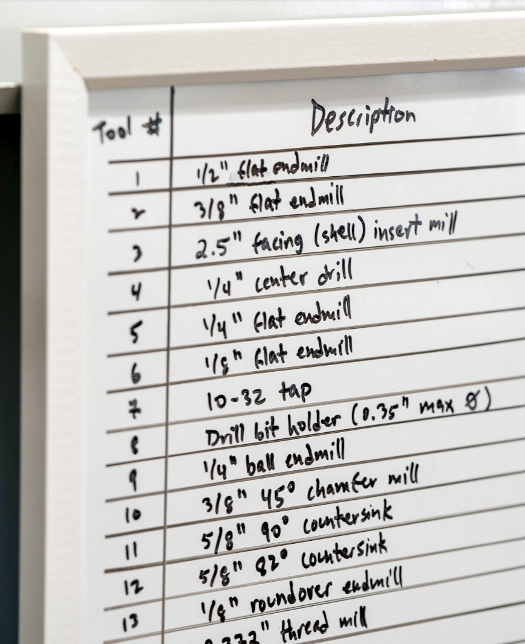 Tool # Description
1 1/2" flat endmill
2 3/8" flat endmill
3 2.5" facing (shell) insert mill
4 1/4" center drill
5 1/4" flat endmill
6 1/8" flat endmill
7 10-32 tap
8 Drill bit holder (0.35" max Ø)
9 1/4" ball endmill
10 3/8" 45° chamfer mill
11 5/8" 90° countersink
12 5/8" 82° countersink
13 1/8" roundover endmill
thread mill